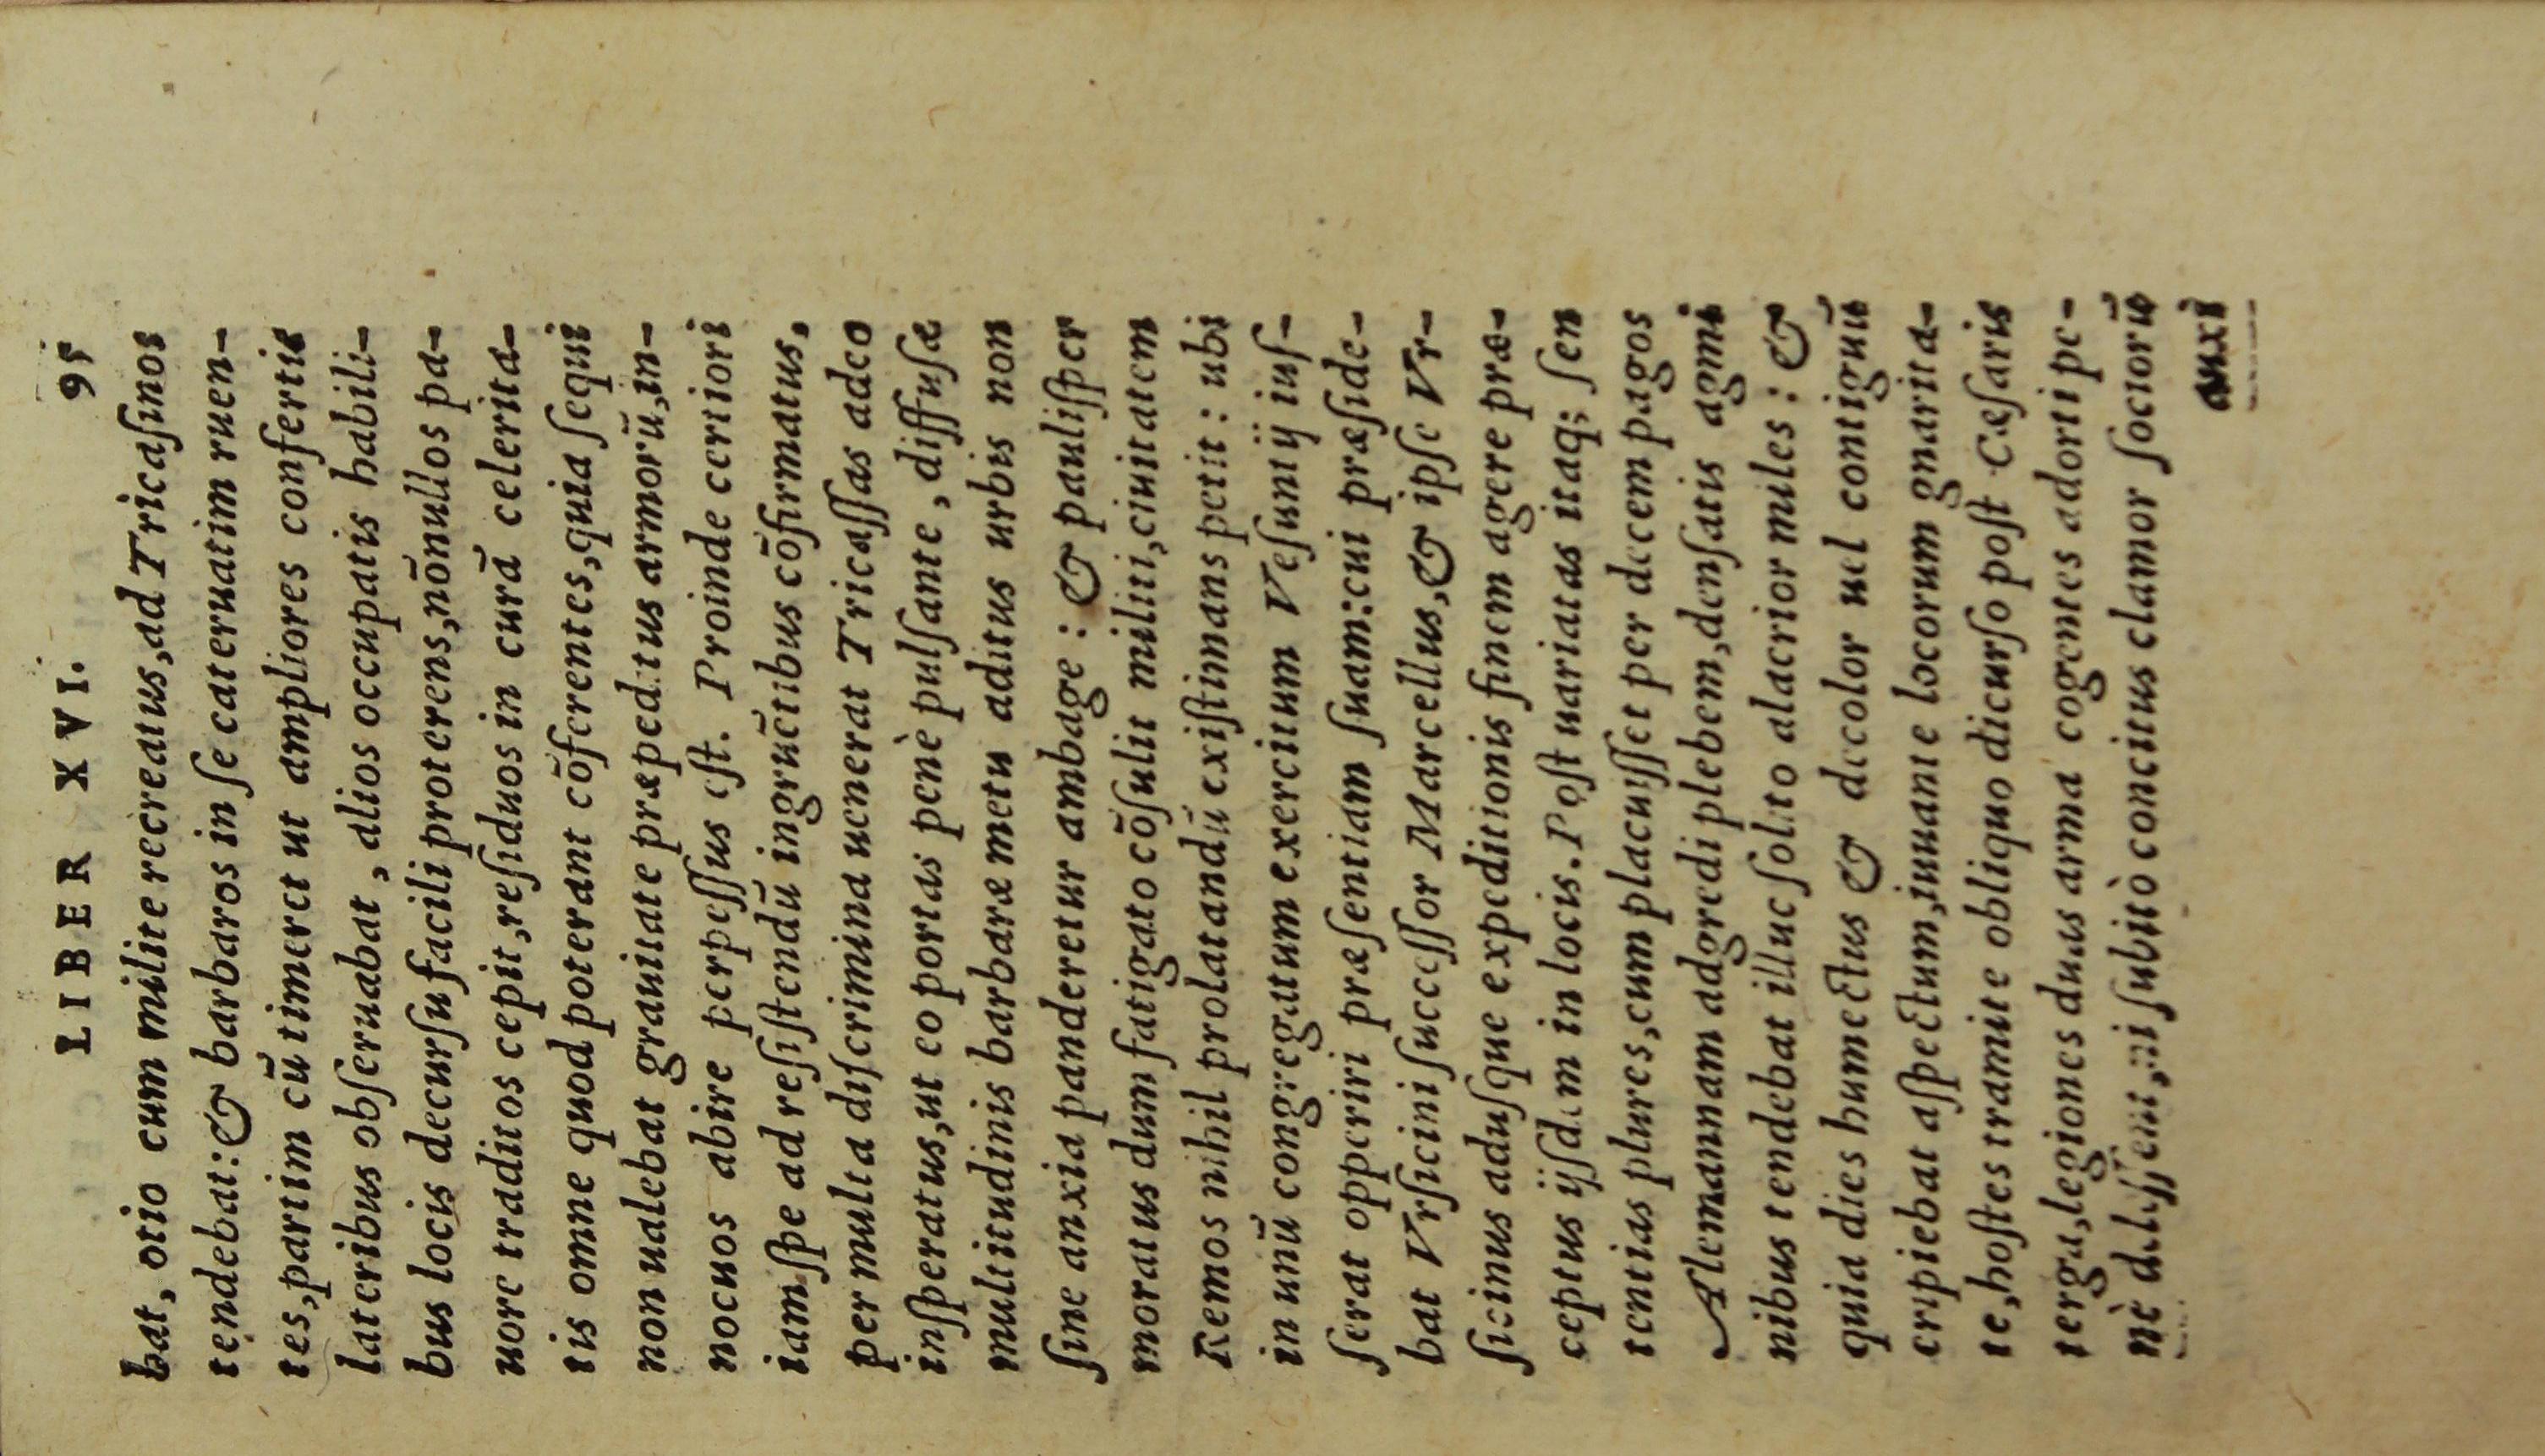 LIBER XVI. 95
bat, otio cum milite recreatus,ad Tricaſinos
tendebat:& barbaros in ſe cateruatim ruen-
tes,partim cū timeret ut ampliores confertis
lateribus obſeruabat, alios occupatis habili-
bus locis decurſu facili proterens,nōnullos pa-
uore traditos cepit,reſiduos in curā celerita-
tis omne quod poterant cōferentes,quia ſequi
non ualebat grauitate præpeditus armorū,in-
nocuos abire perpeſſus eſt. Proinde certiori
iam ſpe ad reſiſtendū ingruētibus cōfirmatus,
per multa diſcrimina uenerat Tricaſſas adeo
inſperatus,ut eo portas penè pulſante, diffuſæ
multitudinis barbaræ metu aditus urbis non
ſine anxia panderetur ambage: & pauliſper
moratus dum fatigato cōſulit militi,ciuitatem
Remos nihil prolatandū exiſtimans petit: ubi
in unū congregatum exercitum Veſuntij iuſ-
ſerat opperiri præſentiam ſuam:cui præſide-
bat Vrſicini ſucceſſor Marcellus,& ipſe Vr-
ſicinus aduſque expeditionis finem agere præ-
ceptus ijſdem in locis. Poſt uariatas itaq; ſen
tentias plures,cum placuiſſet per decem pagos
Alemannam adgredi plebem,denſatis agmi
nibus tendebat illuc ſolito alacrior miles: &
quia dies humectus & decolor uel contiguū
eripiebat aſpectum,iuuante locorum gnarita-
te,hoſtes tramite obliquo dicurſo poſt Cæſaris
terga,legiones duas arma cogentes adorti pe-
nè deleſſent,ni ſubitò concitus clamor ſociorū
auxi